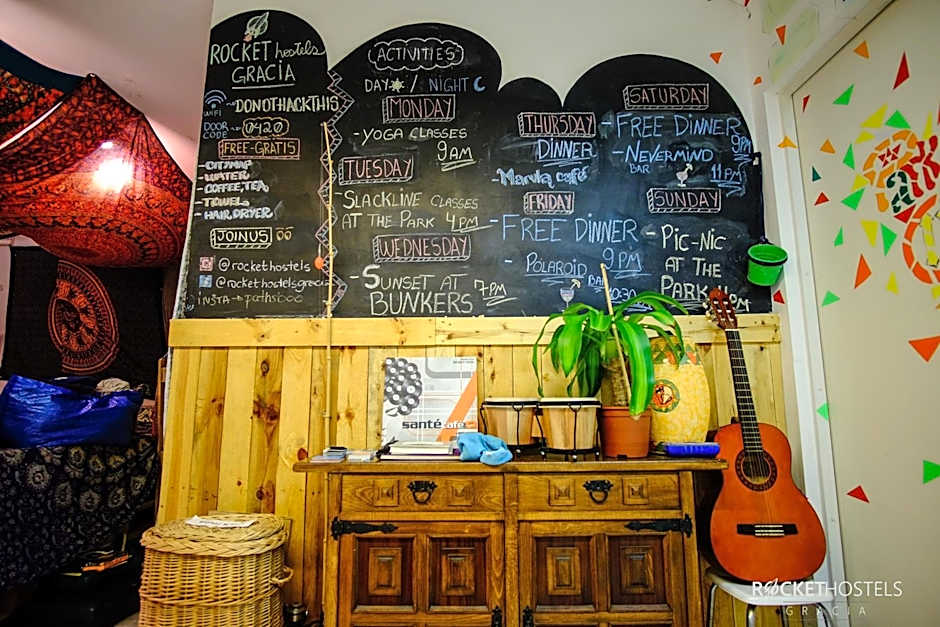 ROCKET hostels
GRACIA
WIFI DONOTHACKTHIS
DOOR CODE 0420
FREE-GRATIS
- CITYMAP
- WATER
- COFFEE, TEA
- TOWEL
- HAIR DRYER
JOIN US
@rockethostels
@rockethostelsgracia
INSTA→
ACTIVITIES
DAY / NIGHT
MONDAY
- YOGA CLASSES
9AM
TUESDAY
- SLACKLINE CLASSES
AT THE PARK 4PM
WEDNESDAY
- SUNSET AT
BUNKERS 7PM
THURSDAY
DINNER
- Maruka café
FRIDAY
- FREE DINNER
9PM
- POLAROID BAR
10:30
SATURDAY
- FREE DINNER
9PM
- NEVERMIND
BAR 11PM
SUNDAY
- PIC-NIC
AT THE
PARK
santé café
ROCKETHOSTELS
GRACIA